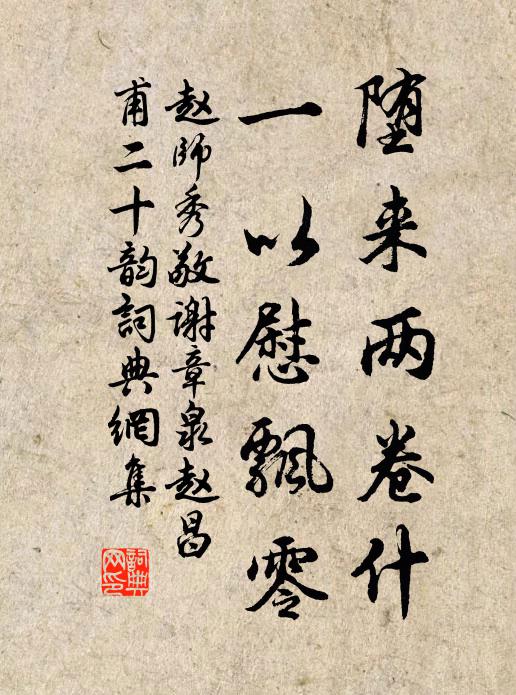 堕来两卷什
一以慰飘零
赵师秀敬谢章泉赵昌
甫二十韵詞典網集
詞典
网印